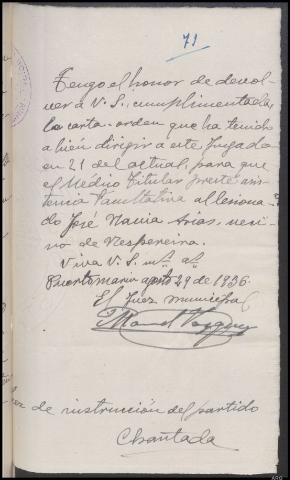 71
Tengo el honor de devol-
ver a V. S., cumplimentada,
la carta-orden que ha tenido
a bien dirigir a este Juzgado
en 21 del actual, para que
el Médico Titular preste asis-
tencia facultativa al lesiona-
do José Navia Arias, veci-
no de Nespereira.
Viva V. S. ms. as.
Puertomarin agosto 29 de 1936.
El Juez municipal
Manuel Vazquez
de instrucción del partido
Chantada